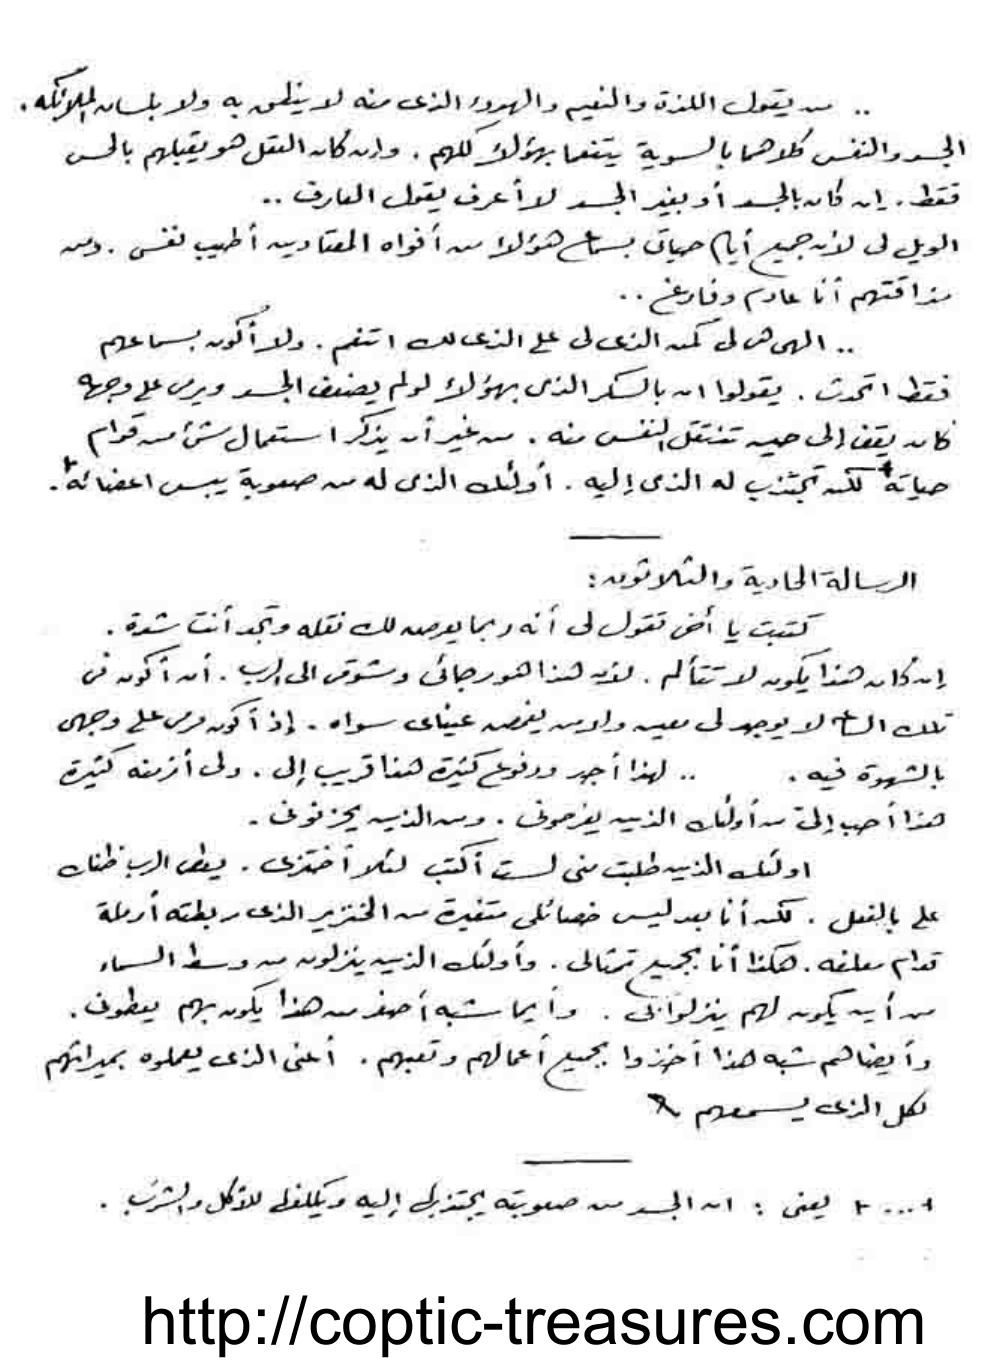 .. من يقول اللذة والنعيم والهدوء الذى منه لا ينطق به ولا بلسان الملائكه .
الجسد والنفس كلاهما بالسوية يتنعما بهؤلاء كلهم . وان كان العقل هو يقبلهم بالحس
فقط . إن كان بالجسد أو بغير الجسد لا أعرف يقول العارف ..
الويل لى لأن جميع أيام حياتى بسماع هؤلاء من أفواه المعتادين أطيب نفسى . ومن
مذاقتهم أنا عادم وفارغ ..
.. الهى هى لى كمن الذى لى على الذى لك اتنعم . ولا أكون بسماعهم
فقط اتحدث . يقولوا ان بالسكر الذى بهؤلاء لو لم يضعف الجسد ويرمى على وجهه
كان يقف إلى حين تنتقل النفس منه . من غير أن يذكر استعمال شئ من قوام
حياته + لكن تجتذب له الذى إليه . أولئك الذى له من صعوبة يبس اعضائه + .
الرسالة الحادية والثلاثون :
كتبت يا أخى تقول لى أنه ربما يعرض لك نقله وتجد أنت شدة .
إن كان هذا يكون لا تتألم . لأن هذا هو رجائى وشوقى الى الرب . أن أكون فى
تلك الساعة لا يوجد لى معين ولا من يغمض عيناى سواه . إذ أكون مرمى على وجهى
بالشهوة فيه . .. لهذا أجد ودفوع كثيرة هذا قريب إلى . ولى أزمنه كثيرة
هذا أحب إلىّ من أولئك الذين يفرحونى . ومن الذين يحزنونى .
اولئك الذين طلبت منى لست أكتب لئلا أخترى . يعطى الرب ظنك
على بالفعل . لكن أنا بعد ليس خصائلى متغيرة من الخنزير الذى ربطته أرملة
قدام معلفه . هكذا أنا بجميع تمثالى . وأولئك الذين ينزلون من وسط السماء
من أين يكون لهم ينزلوا لى . وأيما شبه أصغر من هذا يكون بهم يعطونى .
وأيضا هم شبه هذا أخذوا بجميع أعمالهم وتعبهم . أعنى الذى يعملوه بميراثهم
لكل الذى يسمعهم
+ ... + يعنى : ان الجسد من صعوبته يجتذبه إليه ويكلفه للأكل والشرب .
http://coptic-treasures.com